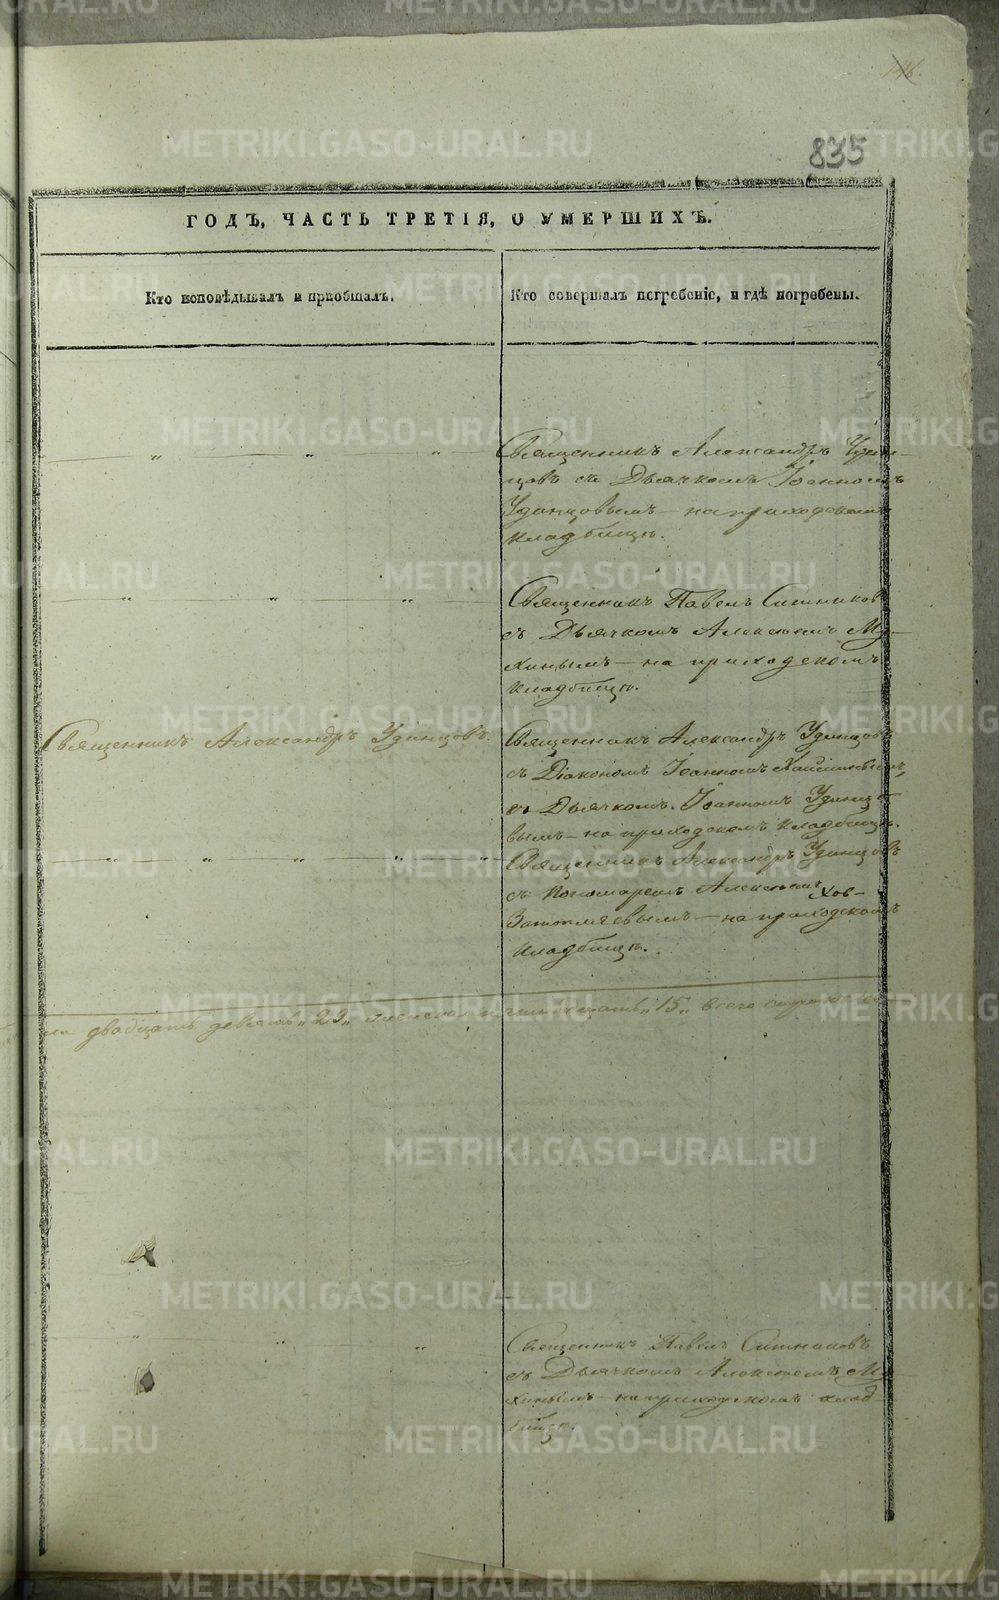 146.
835
ГОДЪ, ЧАСТЬ ТРЕТІЯ, О УМЕРШИХЪ.
Кто исповѣдывалъ и пріобщалъ.
Кто совершалъ погребеніе, и гдѣ погребены.
Священникъ Александръ Удин-
цовъ съ Дьячкомъ Іоанномъ
Удинцовымъ — на приходскомъ
кладбищѣ.
Священникъ Павелъ Ситниковъ
съ Дьячкомъ Алексѣемъ Му-
хинымъ — на приходскомъ
кладбищѣ.
Священникъ Александръ Удинцовъ.
Священникъ Александръ Удинцовъ
съ Діакономъ Іоанномъ
съ Дьячкомъ Іоанномъ Удинцо-
вымъ — на приходскомъ кладбищѣ.
Священникъ Александръ Удинцовъ
съ Пономаремъ Алексѣемъ
— на приходскомъ
кладбищѣ.
двадцать девять „29„ женска пятнадцать „15„ всего сорокъ
Священникъ Павелъ Ситниковъ
съ Дьячкомъ Алексѣемъ Му-
хинымъ — на приходскомъ клад-
бищѣ.
METRIKI.GASO-URAL.RU